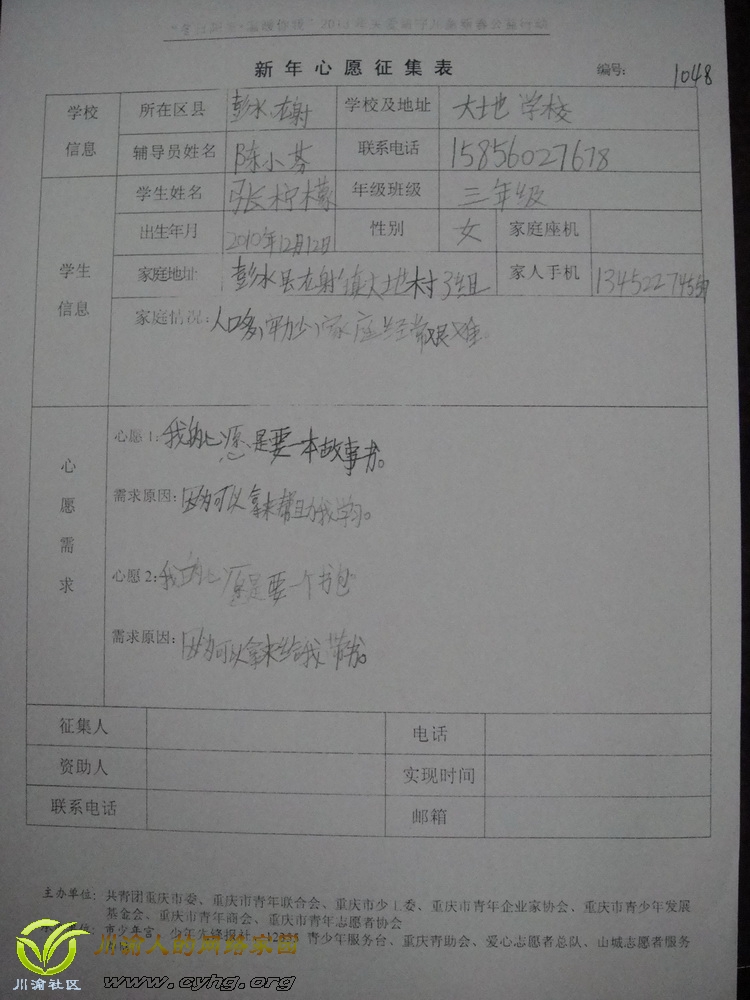 新年心愿征集表 编号: 1048
学校信息 所在区县 彭水 学校及地址 大地学校
辅导员姓名 陈小芬 联系电话 15856027678
学生信息 学生姓名 张柠檬 年级班级 三年级
出生年月 2010年12月12日 性别 女 家庭座机
家庭地址 彭水县 镇大地村3组 家人手机
家庭情况:人口多,
心愿需求
心愿1:我的心愿是要一本故事书。
需求原因:因为可以拿来帮助我学习。
心愿2:我的心愿是要一个书包
需求原因:因为可以拿来给我 书。
征集人 电话
资助人 实现时间
联系电话 邮箱
主办单位:共青团重庆市委、重庆市青年联合会、重庆市少工委、重庆市青年企业家协会、重庆市青少年发展
基金会、重庆市青年商会、重庆市青年志愿者协会
单位:市少年宫、少年先锋报社、12355青少年服务台、重庆青助会、爱心志愿者总队、山城志愿者服务
川渝人的网络家园
川渝社区 www.cyhg.org